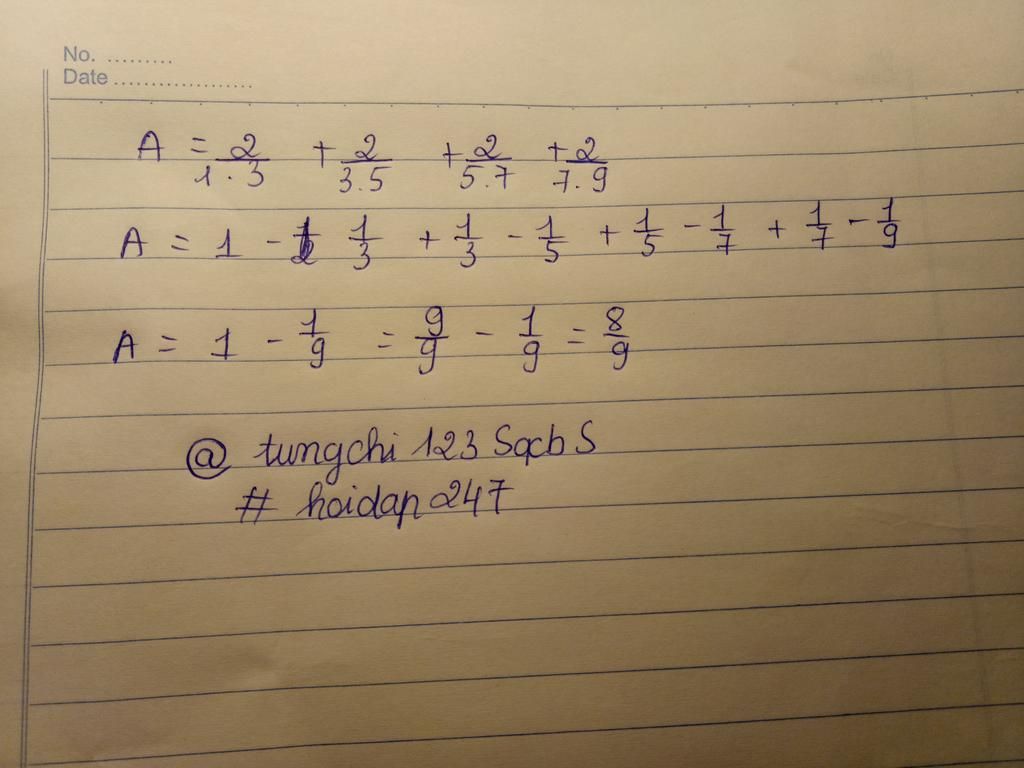 No. .........
Date ...................
A = 2/1.3 + 2/3.5 + 2/5.7 + 2/7.9
A = 1 - 1/3 + 1/3 - 1/5 + 1/5 - 1/7 + 1/7 - 1/9
A = 1 - 1/9 = 9/9 - 1/9 = 8/9
@ tungchi 123 SqcbS
# hoidap247